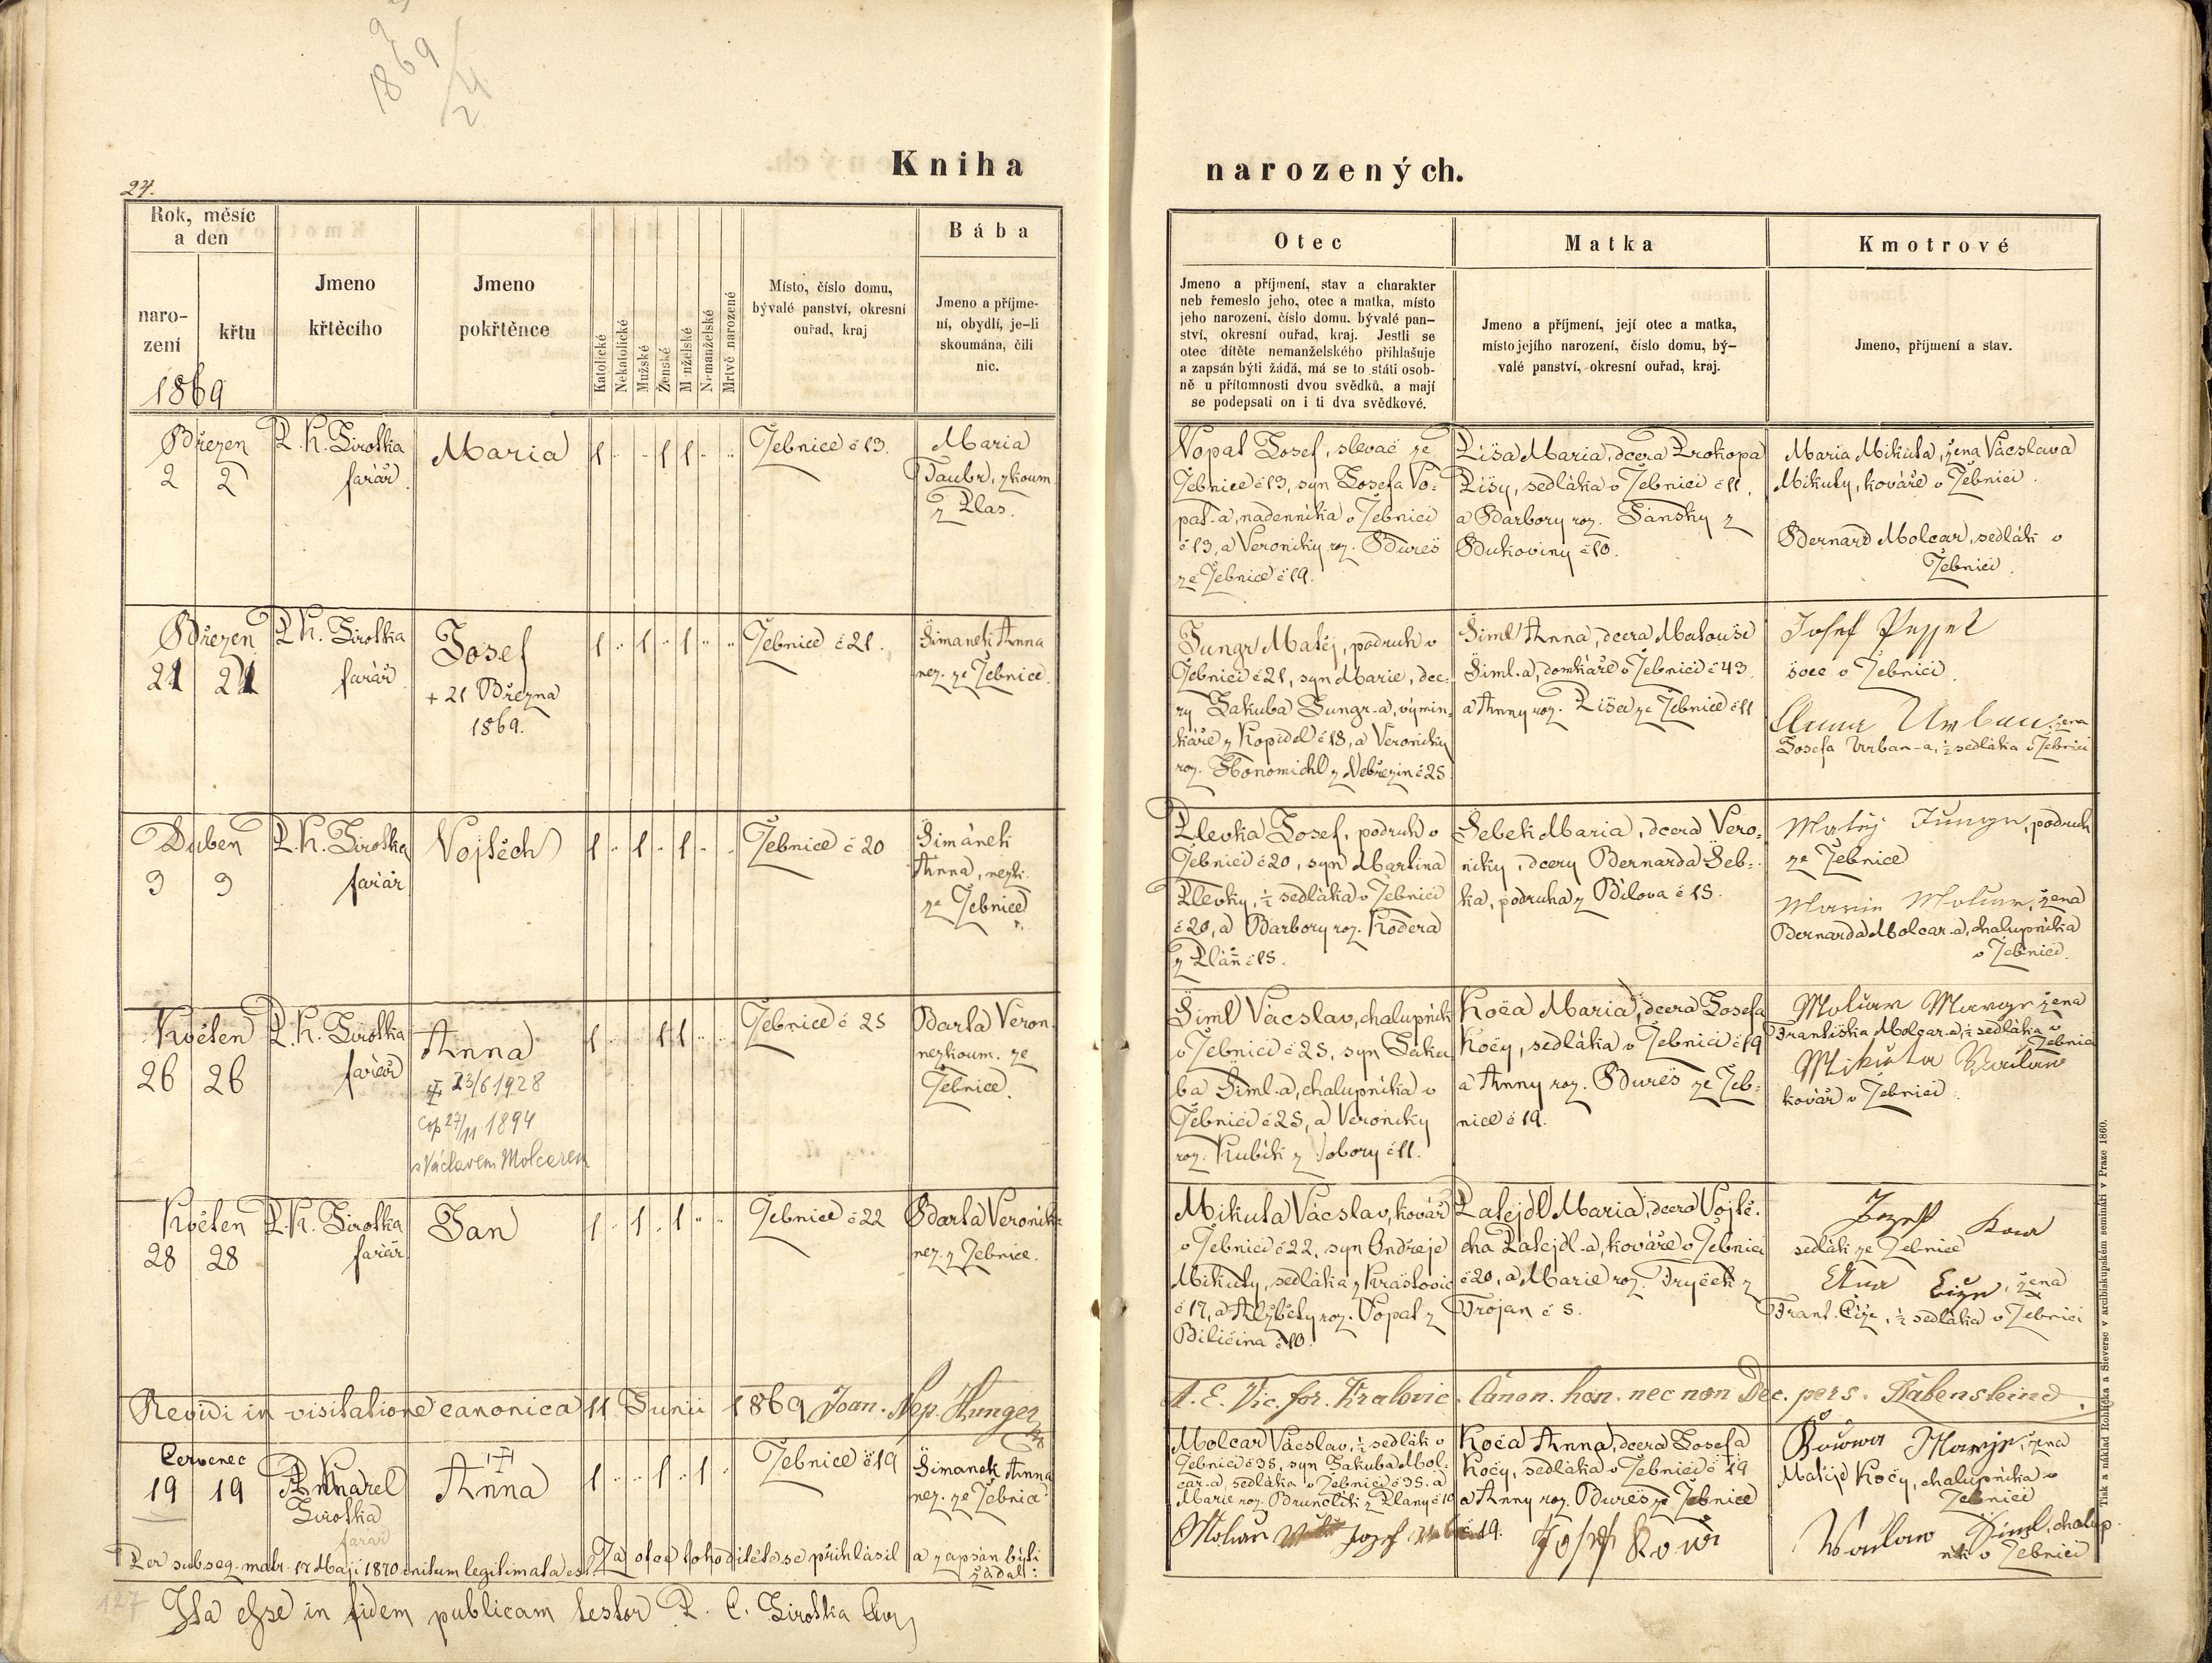 1869
24.
Kniha narozených.
Rok, měsíc
a den
naro-
zení
křtu
1869
Jmeno
křtěcího
Jmeno
pokřtěnce
Katolické
Nekatolické
Mužské
Ženské
Manželské
Nemanželské
Mrtvě narozené
Místo, číslo domu,
bývalé panství, okresní
ouřad, kraj
Bába
Jmeno a příjme-
ní, obydlí, je-li
skoumána, čili
nic.
Otec
Jmeno a příjmení, stav a charakter
neb řemeslo jeho, otec a matka, místo
jeho narození, číslo domu, bývalé pan-
ství, okresní ouřad, kraj. Jestli se
otec dítěte nemanželského přihlašuje
a zapsán býti žádá, má se to státi osob-
ně u přítomnosti dvou svědků, a mají
se podepsati on i ti dva svědkové.
Matka
Jmeno a příjmení, její otec a matka,
místo jejího narození, číslo domu, bý-
valé panství, okresní ouřad, kraj.
Kmotrové
Jmeno, příjmení a stav.
Březen
2 2
P. K. Sirotka
farář
Maria
1 1 1
Žebnice č 13.
Maria
Taubr, zkoum.
z Plas.
Vopat Josef, slevač ze
Žebnice č 13, syn Josefa Vo-
pat-a, nadenníka v Žebnici
č 13, a Veroniky roz. Bureš
ze Žebnice č 19.
Píša Maria, dcera Prokopa
Píšy, sedláka v Žebnici č 11,
a Barbory roz. Jánský z
Bukoviny č 10.
Maria Mikuta, žena Vácslava
Mikuty, kováře v Žebnici.
Bernard Molcar, sedlák v
Žebnici.
Březen
21 21
P. K. Sirotka
farář
Josef
+ 21 Března
1869.
1 1 1
Žebnice č 21.
Šimanek Anna
nez. ze Žebnice.
Jungr Matěj, podruh v
Žebnici č 21, syn Marie, dce-
ry Jakuba Jungr-a, výmin-
káře z Kopidl č 18, a Veroniky
roz. Honomichl z Nebřezin č 25
Šiml Anna, dcera Matouše
Šiml-a, domkáře v Žebnici č 43,
a Anny roz. Píša ze Žebnice č 11
Josef
švec v Žebnici.
Anna Urban, žena
Josefa Urban-a, ½ sedláka v Žebnici
Duben
3 3
P. K. Sirotka
farář
Vojtěch
1 1 1
Žebnice č 20
Šimánek
Anna, nezk.
ze Žebnice
Plevka Josef, podruh v
Žebnici č 20, syn Martina
Plevky, ½ sedláka v Žebnici
č 20, a Barbory roz. Kodera
z Pláň č 15.
Šebek Maria, dcera Vero-
niky, dcery Bernarda Šeb-
ka, podruha z Bílova č 15.
Matěj Jungr, podruh
ze Žebnice
Marie Molcar, žena
Bernarda Molcar-a, chalupníka
v Žebnici.
Květen
26 26
P. K. Sirotka
farář
Anna
23/6 1928
cop 27/11 1894
s Václavem Molcerem
1 1 1
Žebnice č 25
Barta Veron.
nezkoum. ze
Žebnice.
Šiml Vácslav, chalupník
v Žebnici č 25, syn Jaku-
ba Šiml-a, chalupníka v
Žebnici č 25, a Veroniky
roz. Kubík z Vobory č 11.
Koča Maria, dcera Josefa
Kočy, sedláka v Žebnici č 19
a Anny roz. Bureš ze Žeb-
nice č 19.
žena
Františka Molcar-a, ½ sedláka v
Žebnici
Mikuta
kovář v Žebnici.
Květen
28 28
P. K. Sirotka
farář
Jan
1 1 1
Žebnice č 22
Barta Veronik-
nez. z Žebnice.
Mikuta Vácslav, kovář
v Žebnici č 22, syn Ondřeje
Mikuty, sedláka z Krašovic
č 17, a Alžběty roz. Vopat z
Biličina č 10.
Patejdl Maria, dcera Vojtě-
cha Patejdl-a, kováře v Žebnici
č 20, a Marie roz. Tryček z
Trojan č 5.
Jozef
sedlák ze Žebnice
žena
Frant. Číže, ½ sedláka v Žebnici
Revidi in visitatione canonica 11 Junii 1869 Joan. Nep. Hunger
A. E. Vic. for. Kralovic. Canon. hon. nec non Dec. pers. Rabenstein.
Červenec
19 19
P. Karel
Sirotka
farář
Anna
1 1 1
Žebnice č 19
Šimanek Anna
nez. ze Žebnice
Molcar Vácslav, ½ sedlák v
Žebnici č 35, syn Jakuba Mol-
car-a, sedláka v Žebnici č 35, a
Marie roz. Brunclík z Plany č 10
Koča Anna, dcera Josefa
Kočy, sedláka v Žebnici č 19
a Anny roz. Bureš ze Žebnice
č 19.
žena
Matěje Kočy, chalupníka v
Žebnici
Šiml, chalup-
ník v Žebnici
Per subseq. matr. 17 Maji 1870 initum legitimata est. Za otce tohoto dítěte se přihlásil a zapsán býti
žádal:
Ita esse in fidem publicam testor P. C. Sirotka
127
Tisk a náklad Rohlíčka a Sieverse v arcibiskupském semináři v Praze 1860.